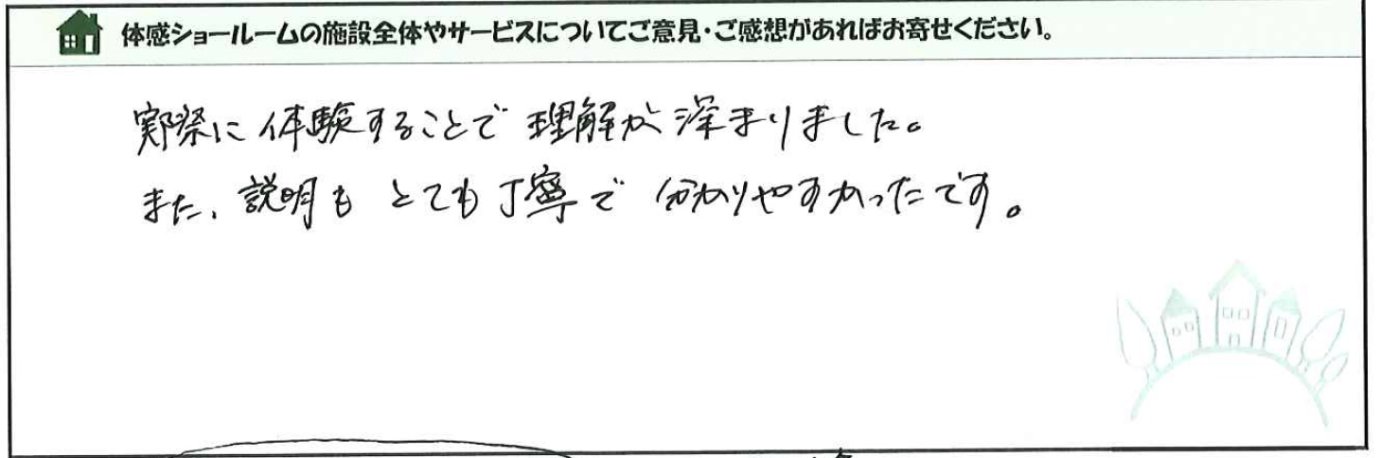 体感ショールームの施設全体やサービスについてご意見・ご感想があればお寄せください。
実際に体験することで理解が深まりました。
また、説明もとても丁寧で分かりやすかったです。